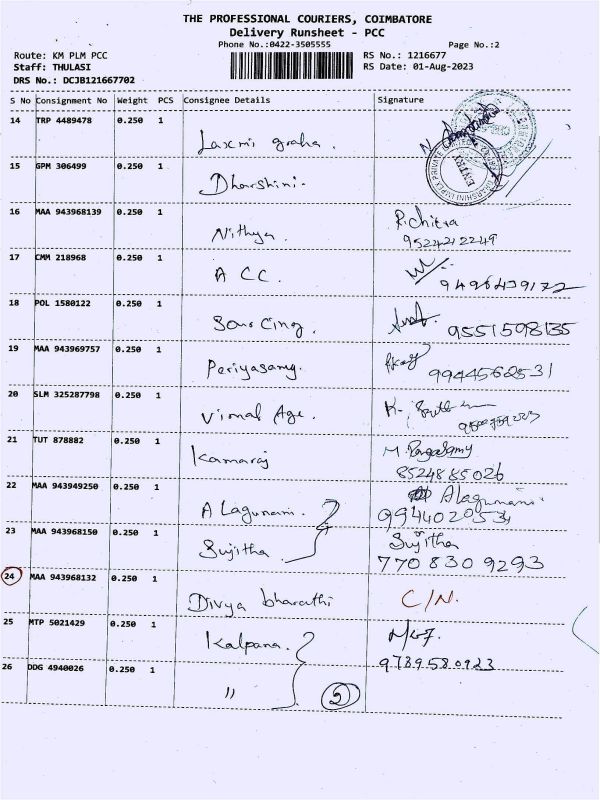 THE PROFESSIONAL COURIERS, COIMBATORE
Delivery Runsheet - PCC
Phone No.:0422-3505555
Page No.:2
Route: KM PLM PCC
Staff: THULASI
DRS No.: DCJB121667702
RS No.: 1216677
RS Date: 01-Aug-2023
S No Consignment No Weight PCS Consignee Details Signature
14 TRP 4489478 0.250 1 Laxmi graha.
ENTRY
15 GPM 306499 0.250 1 Dharshini.
16 MAA 943968139 0.250 1 Nithya. R. Chitra
9524212249
17 CMM 218968 0.250 1 A CC.
9496439172
18 POL 1580122 0.250 1 Sourcing. 9551598135
19 MAA 943969757 0.250 1 Periyasamy. 9944562531
20 SLM 325287798 0.250 1 Vimal Age. K.
21 TUT 878882 0.250 1 Kamaraj M. Rangasamy
8524885026
22 MAA 943949250 0.250 1 Alagunami. Alagunami.
23 MAA 943968150 0.250 1 Sujitha. Sujitha
7708309293
24 MAA 943968132 0.250 1 Divya bharathi C/N.
25 MTP 5021429 0.250 1 Kalpana.
9789580923
26 DDG 4940026 0.250 1 "